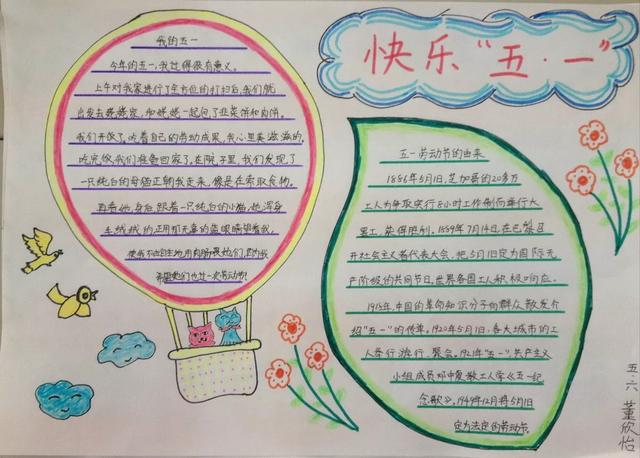 快乐“五·一”
我的五一
今年的五一,我过得很有意义。
上午对我家进行了全方位的打扫后,我们就
出发去姥姥家,和姥姥一起包了韭菜饼和肉饼。
我们开饭了,吃着自己的劳动成果,我心里美滋滋的。
吃完饭,我们准备回家了,在院子里,我们发现了
一只纯白的母猫正朝我走来,像是在索取食物。
再看她,身后,跟着一只纯白的小猫,她浑身
毛绒绒的,正用那无辜的蓝眼睛望着我,
使我不由自主地用肉肠喂她们,
希望她们也过一次劳动节!
五一劳动节的由来
1886年5月1日,芝加哥的20多万
工人为争取实行8小时工作制而举行大
罢工,获得胜利。1889年7月14日,在巴黎召
开社会主义者代表大会,把5月1日定为国际无
产阶级的共同节日,世界各国工人积极响应。
1918年,中国的革命知识分子向群众散发介
绍“五一”的传单。1920年5月1日,各大城市的工
人举行游行、聚会。1921年“五一”,共产主义
小组成员邓中夏教工人学《五一纪
念歌》,1949年12月将5月1日
定为法定的劳动节。
五·六 董欣怡